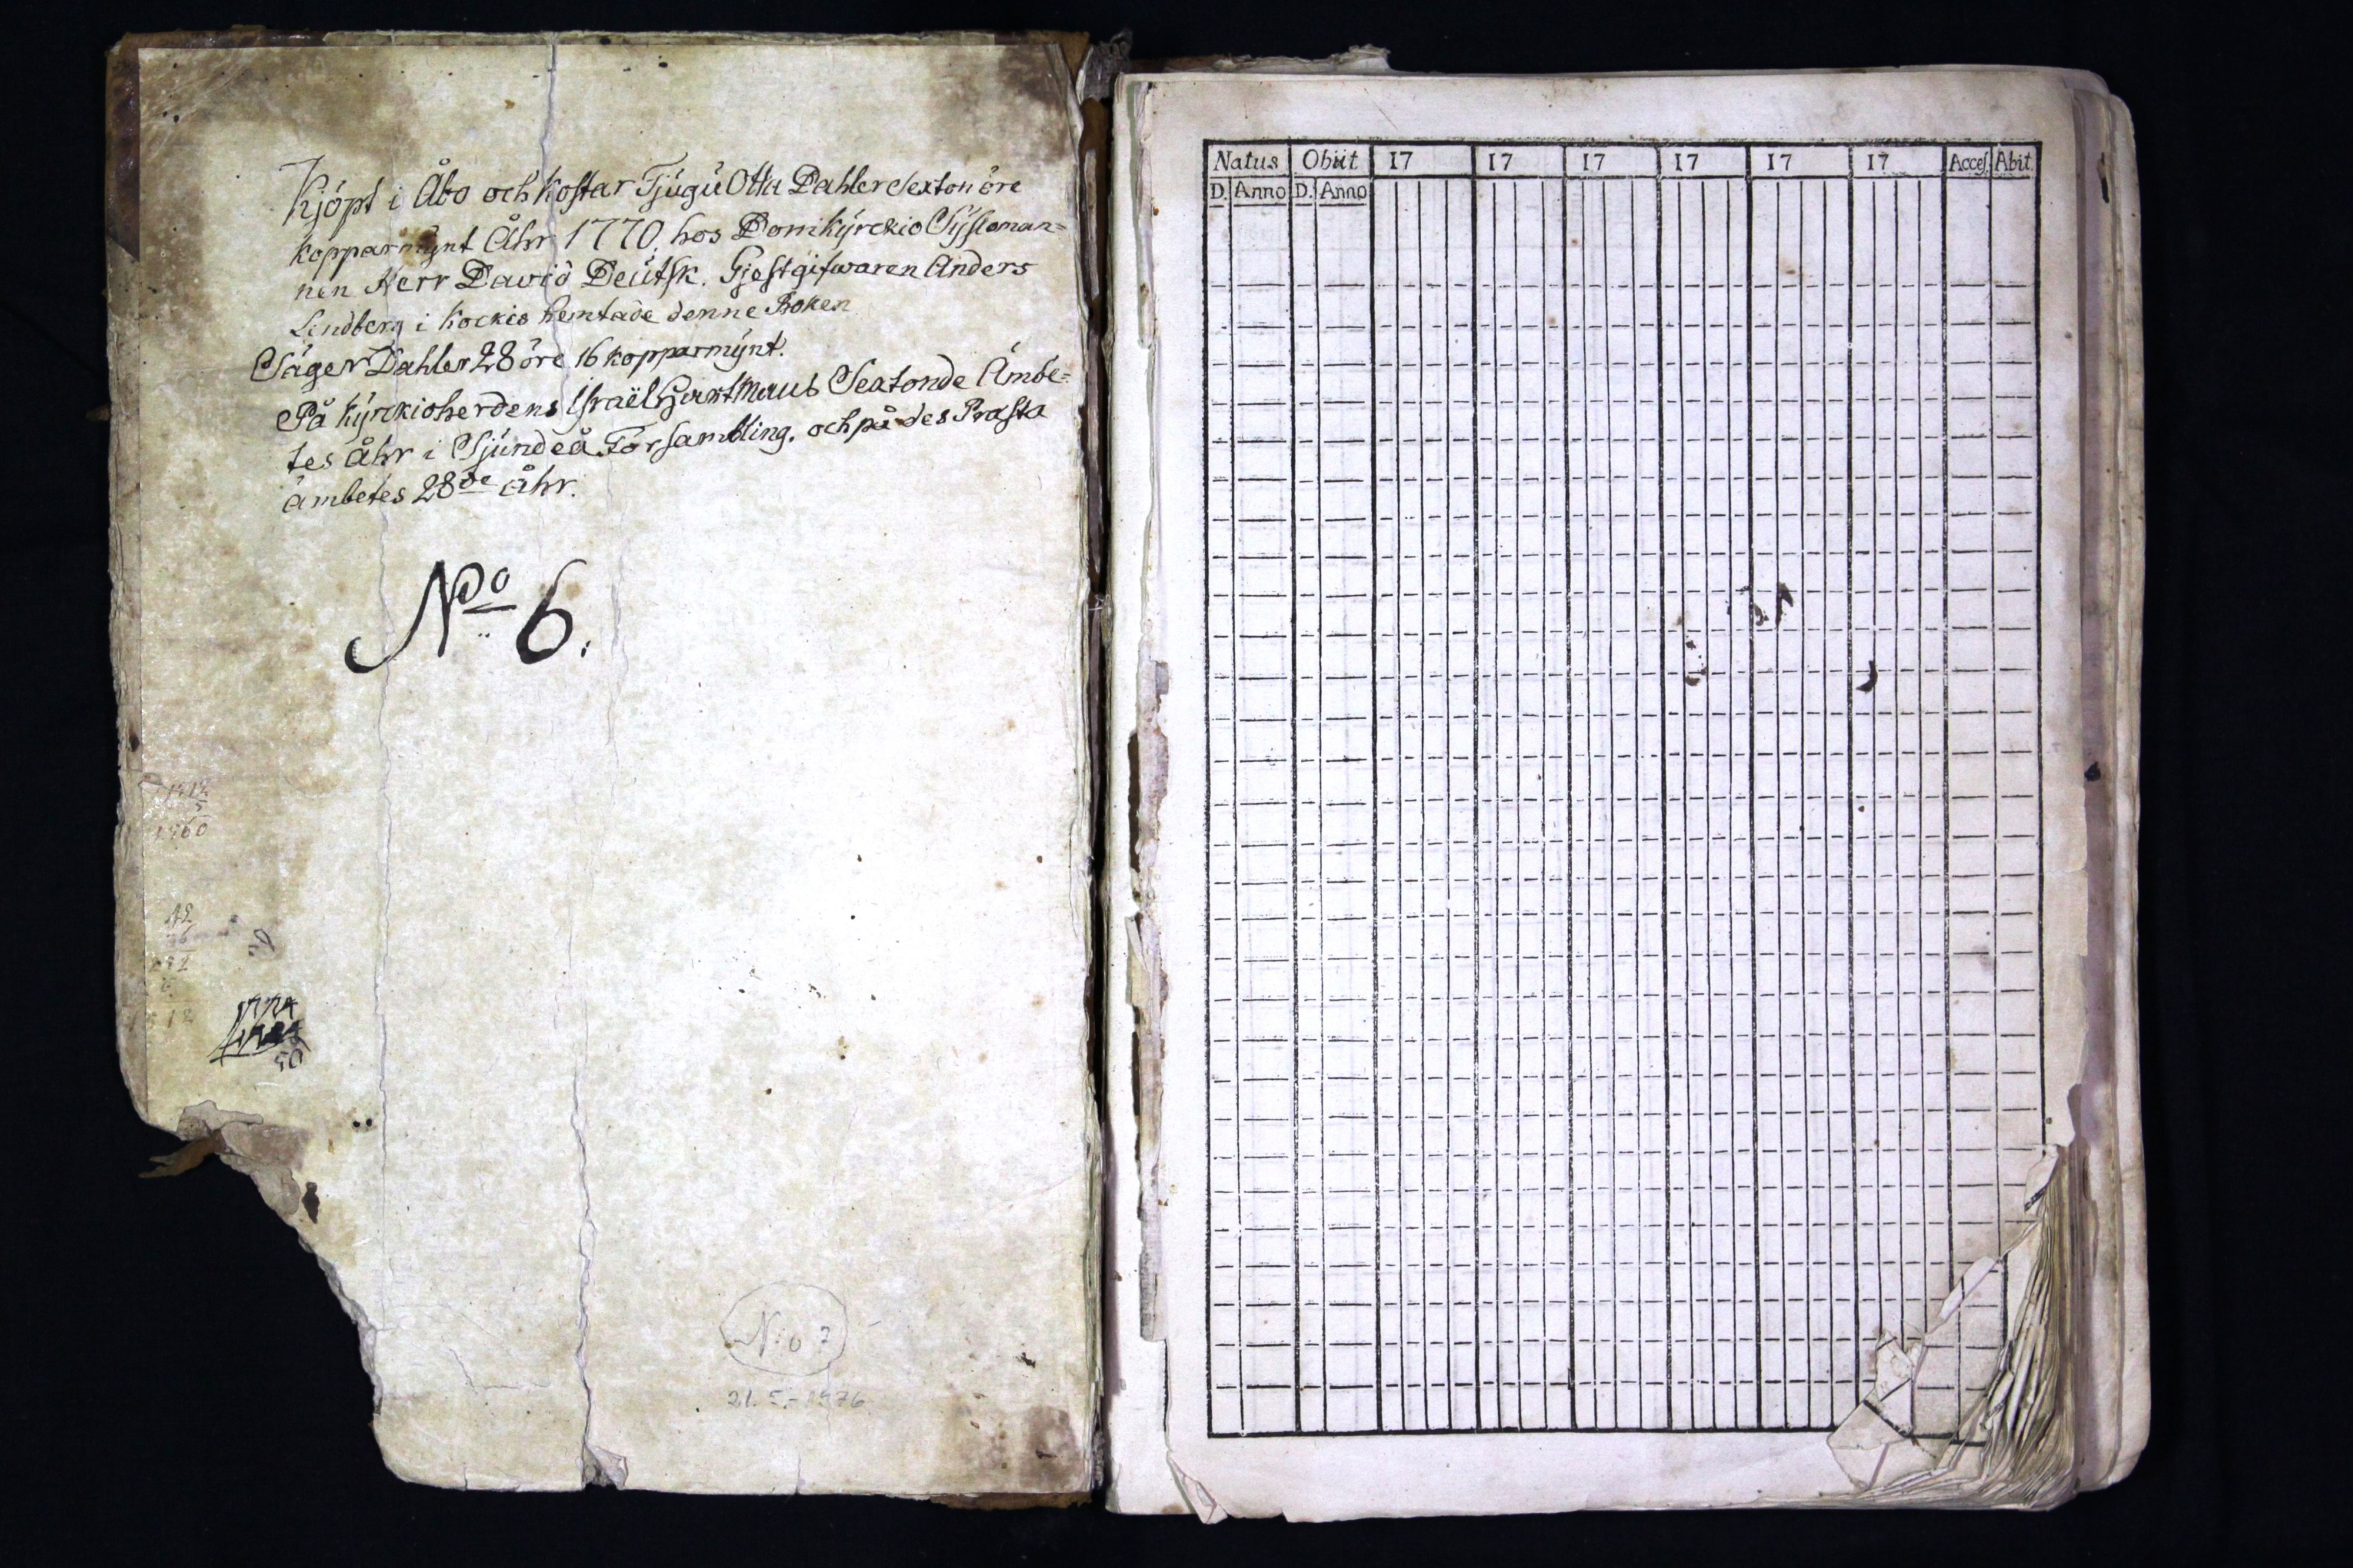 Kjöpt i Åbo och kostar Tjugu Otta Dahler Sexton öre
kopparmynt Åhr 1770. hos Domkyrckio Sysloman=
nen Herr David Deutsk. Gjestgifwaren Anders
Lindberg i Kockis hemtade denne Boken
Säger Dahler 28 öre 16 kopparmynt.
På kyrckioherdens Israël Hartmans Sextonde Ämbe=
tes åhr i Sjundeå Församling. och på des Prästa
ämbetes 28de åhr.
No 6.
50
N:o 7
21.5.-1976
Natus Obiit 17 17 17 17 17 17 Acces. Abit.
D. Anno D. Anno